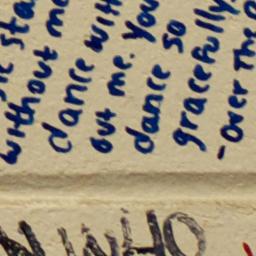 without me
dance with
out me. You
dance so
gracefully
-Over The